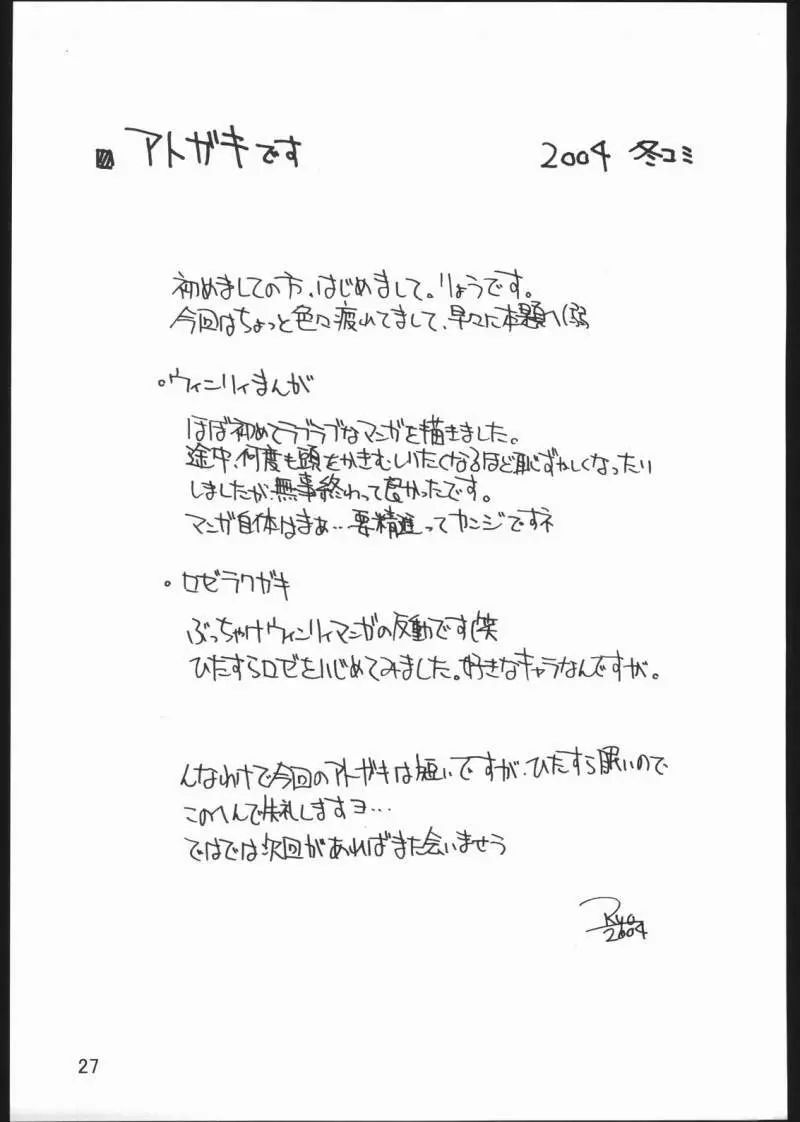 アトガキです
2004 冬コミ
初めましての方、はじめまして。りょうです。
今回はちょっと色々疲れてまして、早々に本題へ(弱
・ウィンリィまんが
ほぼ初めてラブラブなマンガを描きました。
途中、何度も頭をかきむしいたくなるほど恥ずかしくなったい
しましたが、無事終わって良かったです。
マンガ自体はまぁ…要精進ってカンジですネ
・ロゼラクガキ
ぶっちゃけウィンリィマンガの反動です(笑
ひたすらロゼをいじめてみました。好きなキャラなんですが。
んなわけで今回のアトガキは短いですが、ひたすら眠いので
このへんで失礼しますヨ…
ではでは次回があればまた会いませう
Ryo
2004
27